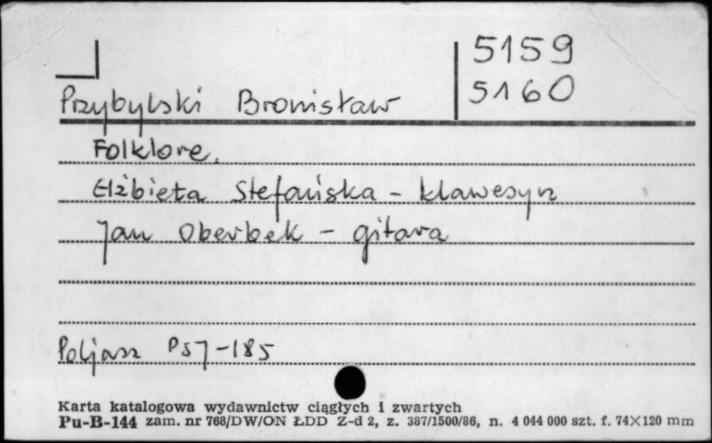 5159
5160
Przybylski Bronisław
Folklore.
Elżbieta Stefańska - klawesyn
Jan Oberbek - gitara
Poljazz PSJ-185
Karta katalogowa wydawnictw ciągłych i zwartych
Pu-B-144 zam. nr 768/DW/ON ŁDD Z-d 2, z. 387/1500/86, n. 4 044 000 szt. f. 74×120 mm